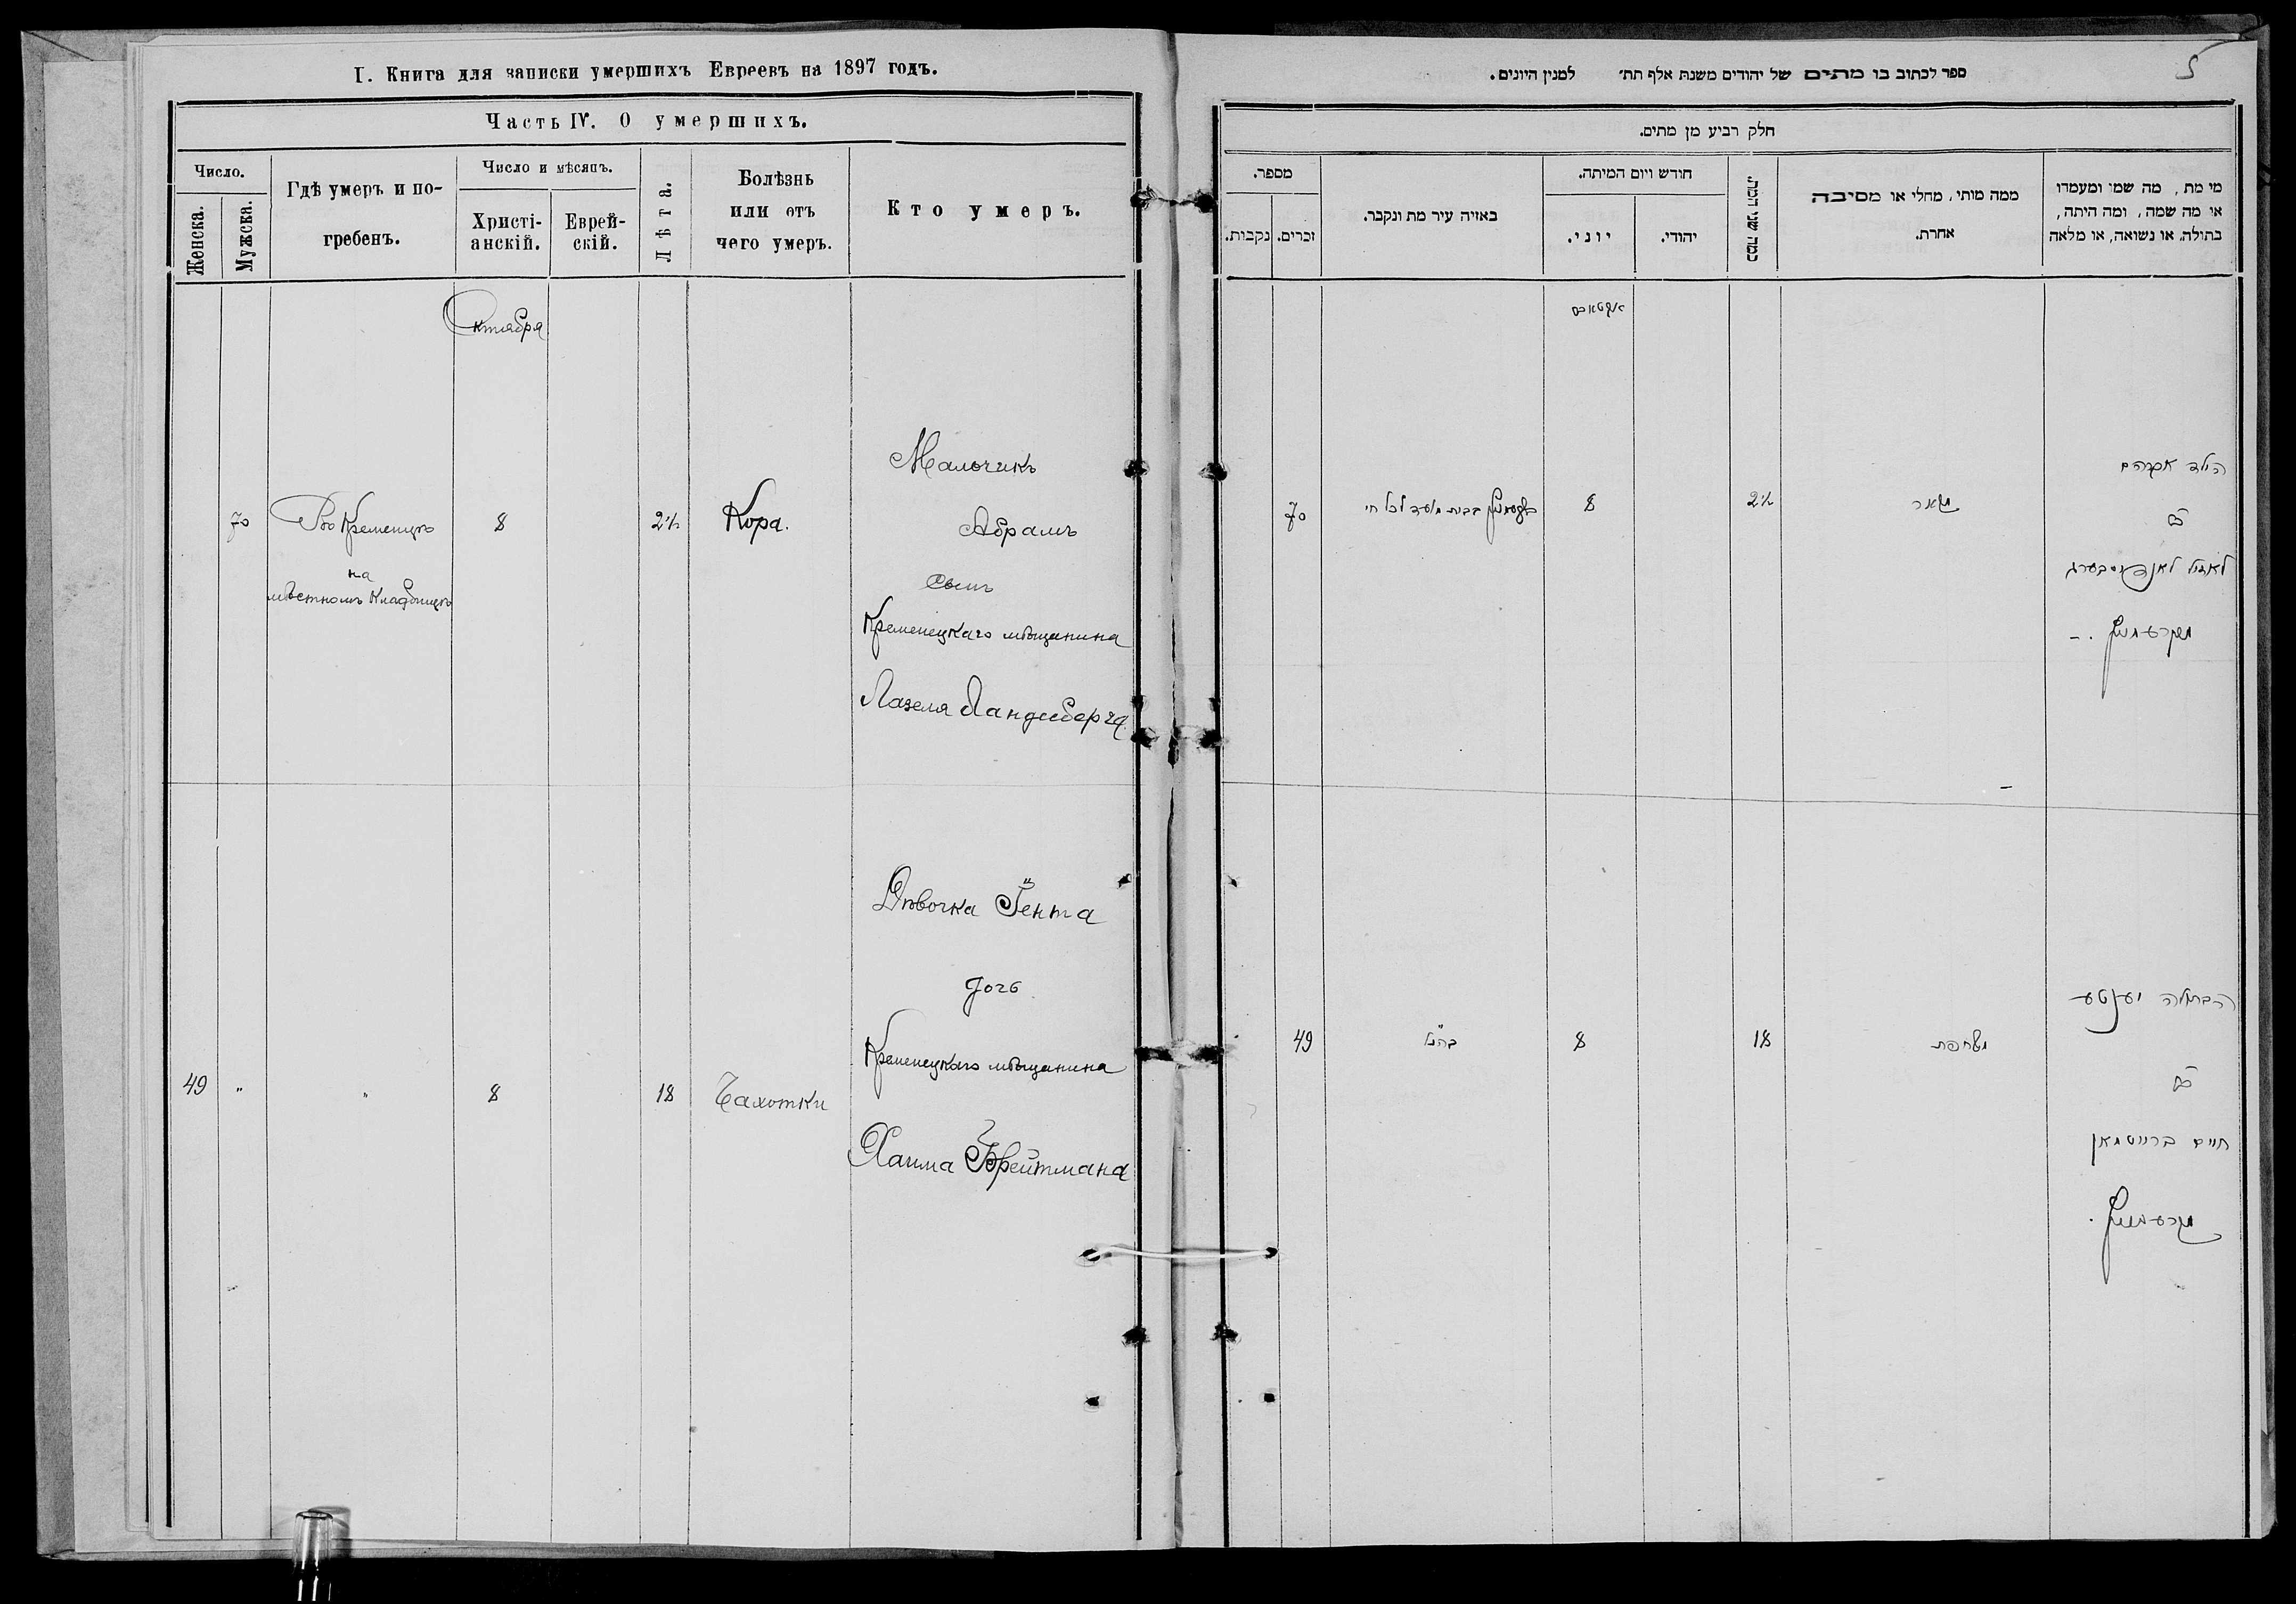 I. Книга для записки умершихъ Евреевъ на 1897 годъ.
Часть IV. О умершихъ.
Число.
Женска.
Мужска.
Гдѣ умеръ и по-
гребенъ.
Число и мѣсяцъ.
Христі-
анскій.
Еврей-
скій.
Лѣта.
Болѣзнь
или отъ
чего умеръ.
Кто умеръ.
Октября
70
Въ Кременцѣ
на
мѣстномъ Кладбищѣ
8
2½
Кора.
Мальчикъ
Абрамъ
Сынъ
Кременецкаго мѣщанина
Лазеля Ландсберга
49
"
"
8
18
Чахотки
Дѣвочка Іента
дочь
Кременецкаго мѣщанина
Хаима Брейтмана
5
ספר לכתוב בו מתים של יהודים משנת אלף תת׳ למנין היונים.
חלק רביע מן מתים.
מספר.
נקבות.
זכרים.
באזיה עיר מת ונקבר.
חודש ויום המיתה.
יוני.
יהודי.
כמה שני המת.
ממה מותי, מחלי או מסיבה
אחרת.
מי מת, מה שמו ומעמדו
או מה שמה, ומה היתה,
בתולה, או נשואה, או מלאה
70
בבית מועד לכל חי
8
2½
הילד אברהם
לאזיל לאנדסבערג
49
כנ"ל
8
18
משחפת
הבתולה יענטע
חיים ברייטמאן